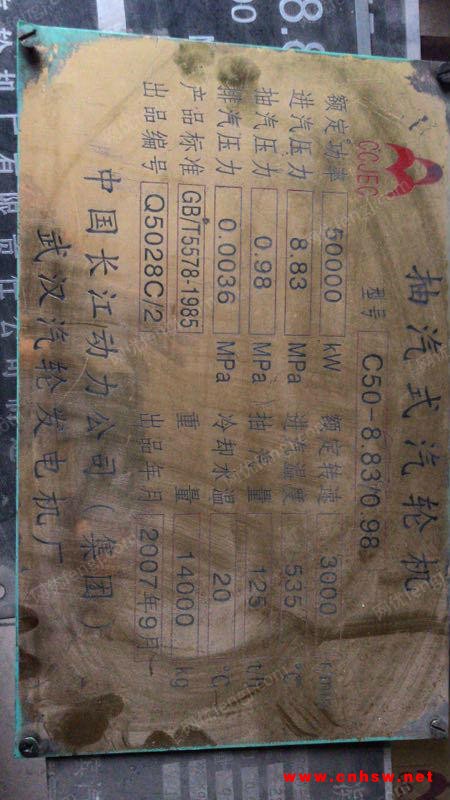 CCJEC
抽汽式汽轮机
型号 C50-8.83/0.98
额定功率 50000 kW 额定转速 3000 r/min
进汽压力 8.83 MPa 进汽温度 535 ℃
抽汽压力 0.98 MPa 抽汽量 125 t/h
排汽压力 0.0036 MPa 冷却水温 20 ℃
产品标准 GB/T5578-1985 重量 14000 kg
出品编号 Q5028C/2 出品年月 2007年9月
中国长江动力公司(集团)
武汉汽轮发电机厂
www.cnhsw.net